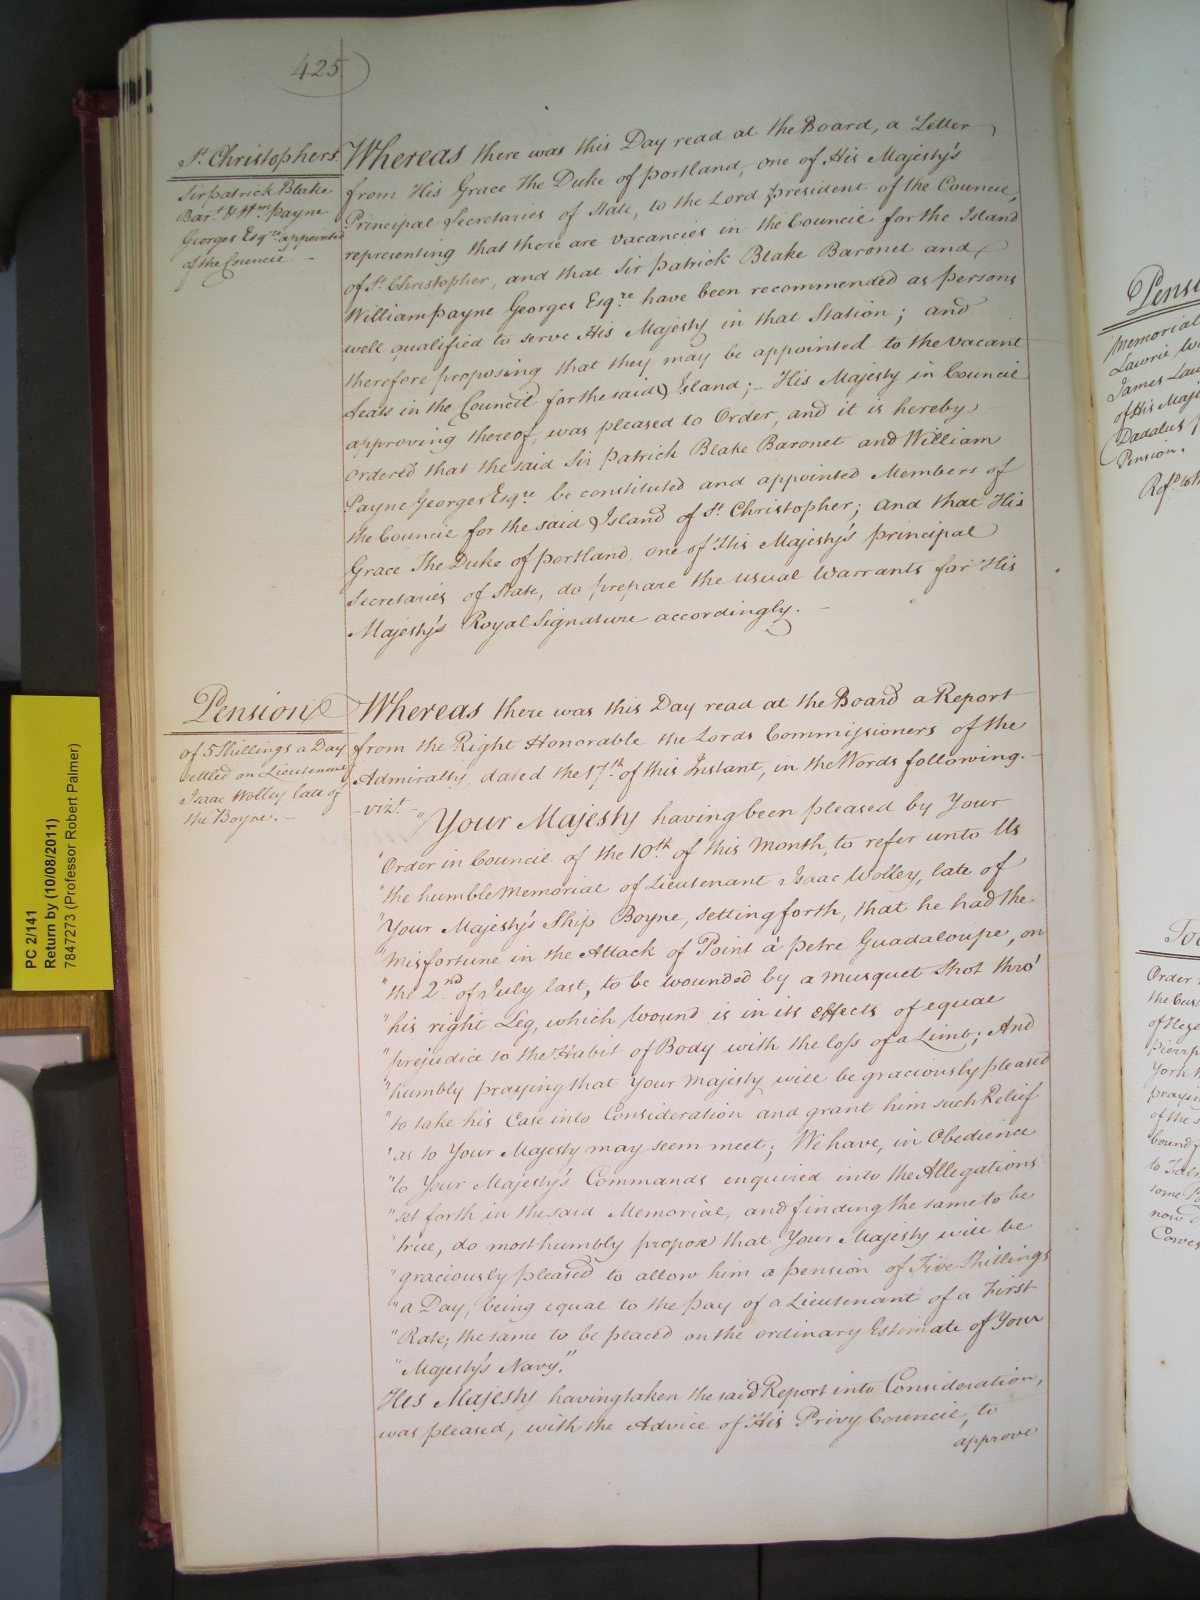 425
St. Christophers
Sir Patrick Blake
Bart. & Wm. Payne
Georges Esqre. appointed
of the Council —
Whereas there was this Day read at the Board, a Letter
from His Grace The Duke of Portland, one of His Majesty's
Principal Secretaries of State, to the Lord President of the Council,
representing that there are vacancies in the Council for the Island
of St. Christopher, and that Sir Patrick Blake Baronet and
William Payne Georges Esqre. have been recommended as Persons
well qualified to serve His Majesty in that Station; and
therefore proposing that they may be appointed to the vacant
Seats in the Council for the said Island; – His Majesty in Council
approving thereof, was pleased to Order, and it is hereby
ordered that the said Sir Patrick Blake Baronet and William
Payne Georges Esqre. be constituted and appointed Members of
the Council for the said Island of St. Christopher; and that His
Grace The Duke of Portland, one of His Majesty's principal
Secretaries of State, do prepare the usual Warrants for His
Majesty's Royal Signature accordingly. –
Pension
of 5 Shillings a Day
settled on Lieutenant
Isaac Wolley late of
the Boyne. –
Whereas there was this Day read at the Board a Report
from the Right Honorable the Lords Commissioners of the
Admiralty, dated the 17th. of this Instant, in the Words following. –
– vizt. –
"Your Majesty having been pleased by Your
"Order in Council of the 10th. of this Month, to refer unto Us
"the humble Memorial of Lieutenant Isaac Wolley, late of
"Your Majesty's Ship Boyne, setting forth, that he had the
"Misfortune in the Attack of Point à petre Guadaloupe, on
"the 2nd. of July last, to be wounded by a Musquet Shot thro'
"his right Leg, which Wound is in its effects of equal
"prejudice to the Habit of Body with the loss of a Limb; And
"humbly praying that Your Majesty will be graciously pleased
"to take his Case into Consideration and grant him such Relief
"as to Your Majesty may seem meet; We have, in Obedience
"to Your Majesty's Commands enquired into the Allegations
"set forth in the said Memorial, and finding the same to be
"true, do most humbly propose that Your Majesty will be
"graciously pleased to allow him a pension of Five Shillings
"a Day, being equal to the Pay of a Lieutenant of a First
"Rate; the same to be placed on the ordinary Estimate of Your
"Majesty's Navy."
His Majesty having taken the said Report into Consideration,
was pleased, with the Advice of His Privy Council, to
approve
PC 2/141
Return by (10/08/2011)
7847273 (Professor Robert Palmer)
Memorial
James
of His
Pension.
Order
of the
now